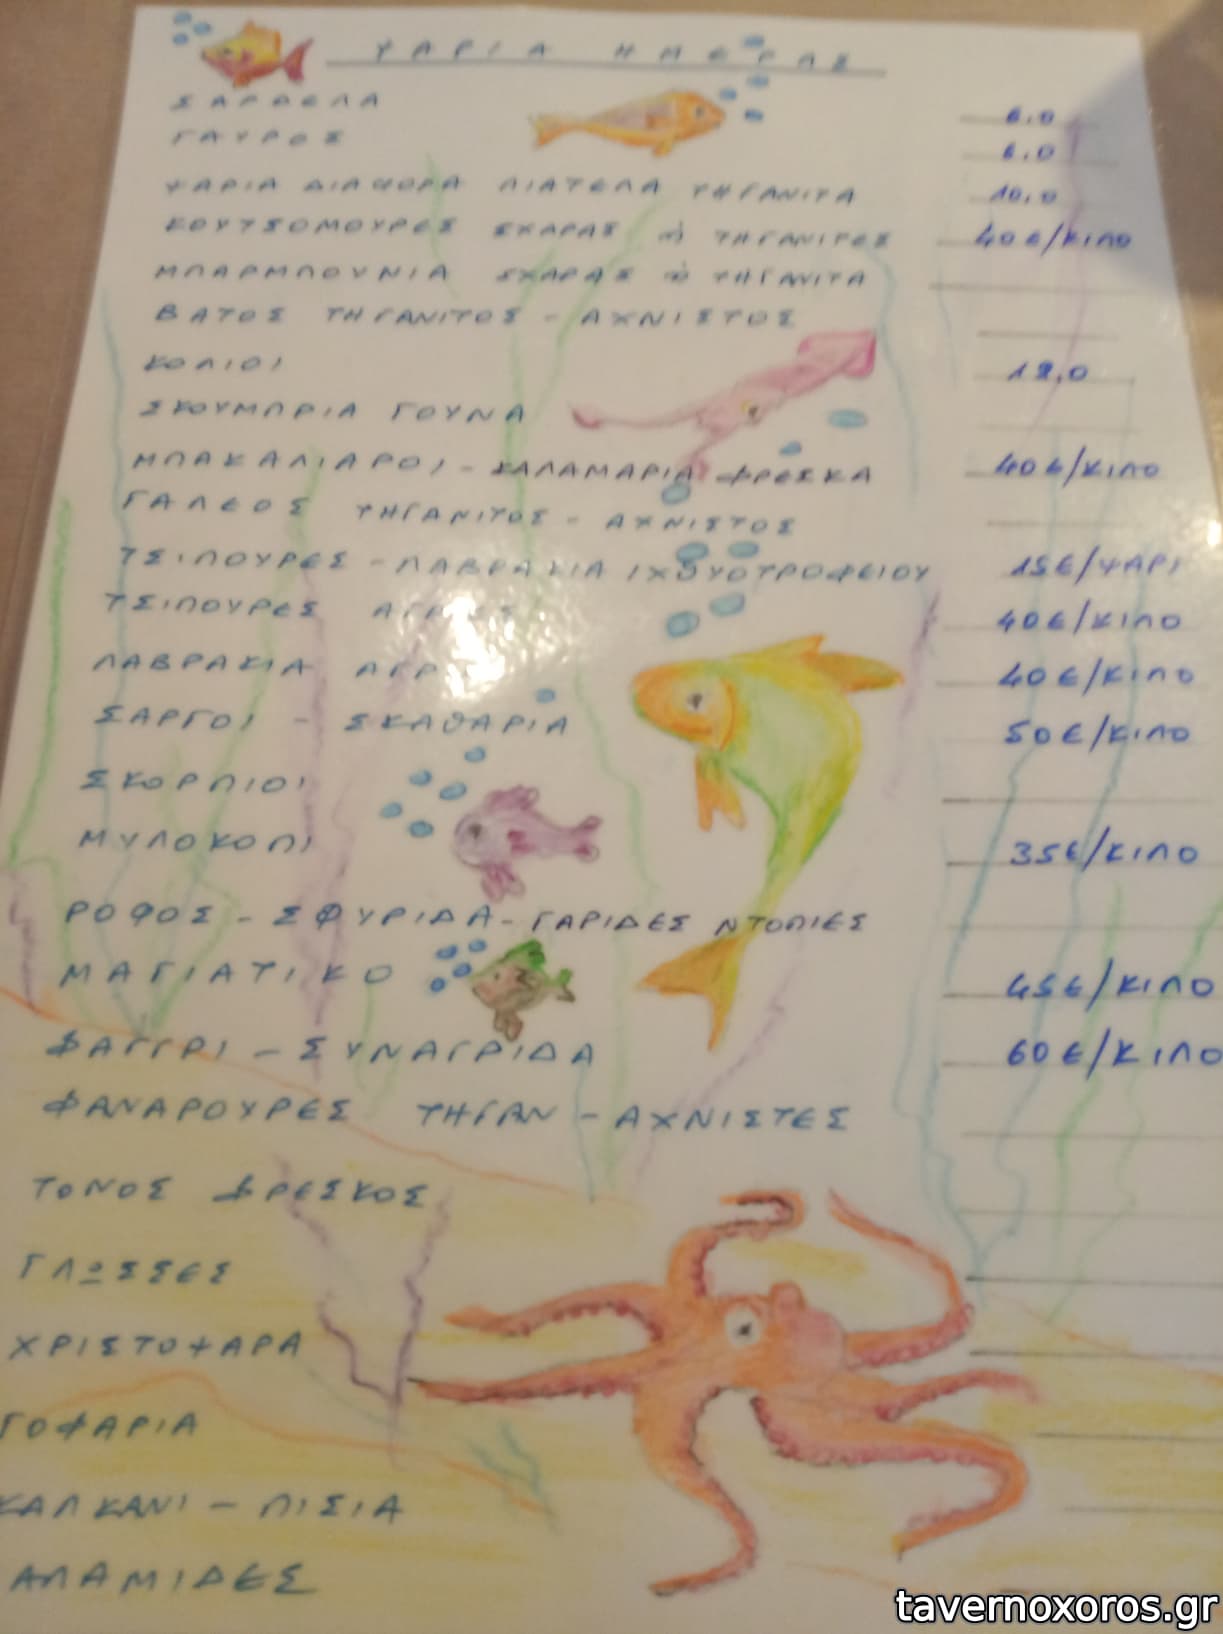 ΨΑΡΙΑ ΗΜΕΡΑΣ
ΣΑΡΔΕΛΑ 6.0
ΓΑΥΡΟΣ 6.0
ΨΑΡΙΑ ΔΙΑΦΟΡΑ ΠΙΑΤΕΛΑ ΤΗΓΑΝΙΤΑ 10,0
ΚΟΥΤΣΟΜΟΥΡΕΣ ΣΧΑΡΑΣ ή ΤΗΓΑΝΙΤΕΣ 40€/ΚΙΛΟ
ΜΠΑΡΜΠΟΥΝΙΑ ΣΧΑΡΑΣ ή ΤΗΓΑΝΙΤΑ
ΒΑΤΟΣ ΤΗΓΑΝΙΤΟΣ - ΑΧΝΙΣΤΟΣ
ΚΟΛΙΟΙ 12,0
ΣΚΟΥΜΠΡΙΑ ΓΟΥΝΑ
ΜΠΑΚΑΛΙΑΡΟΙ - ΚΑΛΑΜΑΡΙΑ ΦΡΕΣΚΑ 40€/ΚΙΛΟ
ΓΑΛΕΟΣ ΤΗΓΑΝΙΤΟΣ - ΑΧΝΙΣΤΟΣ
ΤΣΙΠΟΥΡΕΣ - ΛΑΒΡΑΚΙΑ ΙΧΘΥΟΤΡΟΦΕΙΟΥ 15€/ΨΑΡΙ
ΤΣΙΠΟΥΡΕΣ 40€/ΚΙΛΟ
ΛΑΒΡΑΚΙΑ 40€/ΚΙΛΟ
ΣΑΡΓΟΙ - ΣΚΑΘΑΡΙΑ 50€/ΚΙΛΟ
ΣΚΟΡΠΙΟΙ
ΜΥΛΟΚΟΠΙ 35€/ΚΙΛΟ
ΡΟΦΟΣ - ΣΦΥΡΙΔΑ - ΓΑΡΙΔΕΣ ΝΤΟΠΙΕΣ
ΜΑΓΙΑΤΙΚΟ 45€/ΚΙΛΟ
ΦΑΓΓΡΙ - ΣΥΝΑΓΡΙΔΑ 60€/ΚΙΛΟ
ΦΑΝΑΡΟΥΡΕΣ ΤΗΓΑΝ - ΑΧΝΙΣΤΕΣ
ΤΟΝΟΣ ΦΡΕΣΚΟΣ
ΓΛΩΣΣΕΣ
ΧΡΙΣΤΟΨΑΡΑ
ΓΟΦΑΡΙΑ
ΚΑΛΚΑΝΙ - ΠΙΣΙΑ
ΠΑΛΑΜΙΔΕΣ
tavernoxoros.gr